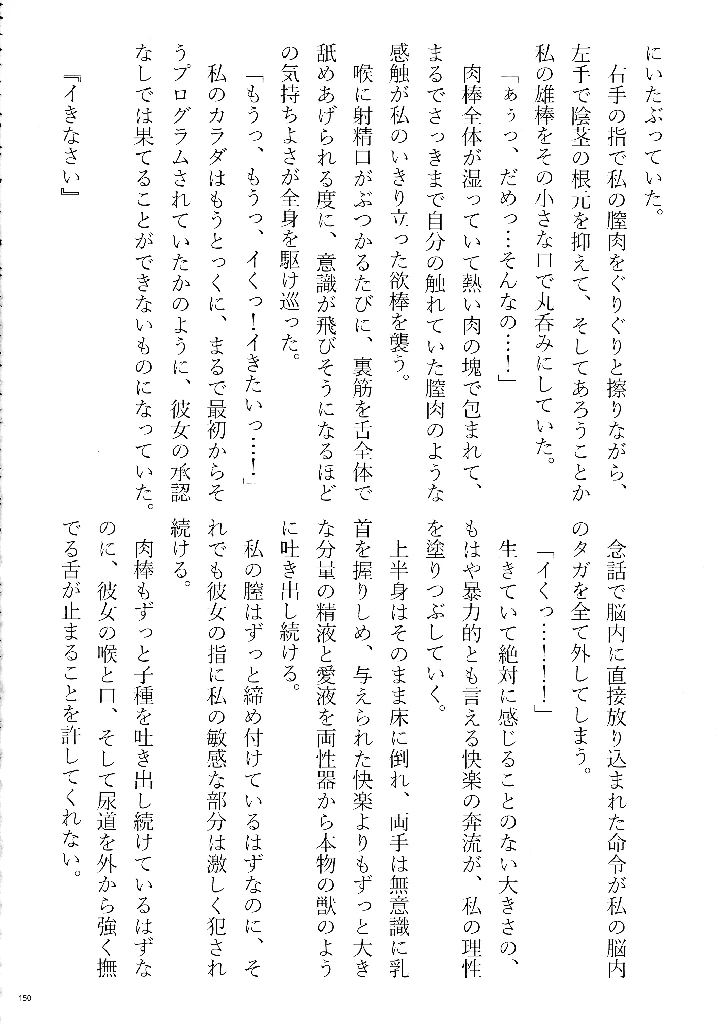 にいたぶっていた。
　右手の指で私の膣肉をぐりぐりと擦りながら、
左手で陰茎の根元を抑えて、そしてあろうことか
私の雄棒をその小さな口で丸呑みにしていた。
「ぁぅっ、だめっ…そんなの…！」
　肉棒全体が湿っていて熱い肉の塊で包まれて、
まるでさっきまで自分の触れていた膣肉のような
感触が私のいきり立った欲棒を襲う。
　喉に射精口がぶつかるたびに、裏筋を舌全体で
舐めあげられる度に、意識が飛びそうになるほど
の気持ちよさが全身を駆け巡った。
「もうっ、もうっ、イくっ！イきたいっ…！」
　私のカラダはもうとっくに、まるで最初からそ
うプログラムされていたかのように、彼女の承認
なしでは果てることができないものになっていた。
『イきなさい』
　念話で脳内に直接放り込まれた命令が私の脳内
のタガを全て外してしまう。
「イくっ…！！！」
　生きていて絶対に感じることのない大きさの、
もはや暴力的とも言える快楽の奔流が、私の理性
を塗りつぶしていく。
　上半身はそのまま床に倒れ、両手は無意識に乳
首を握りしめ、与えられた快楽よりもずっと大き
な分量の精液と愛液を両性器から本物の獣のよう
に吐き出し続ける。
　私の膣はずっと締め付けているはずなのに、そ
れでも彼女の指に私の敏感な部分は激しく犯され
続ける。
　肉棒もずっと子種を吐き出し続けているはずな
のに、彼女の喉と口、そして尿道を外から強く撫
でる舌が止まることを許してくれない。
150